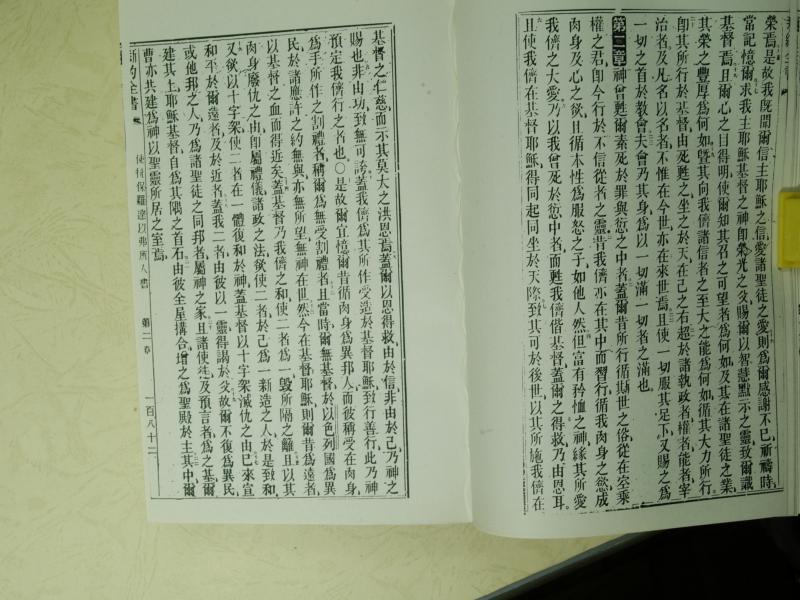 榮焉是故我既聞爾信主耶穌之信愛諸聖徒之愛則為爾感謝不已祈禱時
當記憶爾求我主耶穌基督之神即榮光之父賜爾以智慧默示之靈致爾識
基督焉且爾心之目得明使爾知其召之可望者為何如及其在諸聖徒之業
其榮之豐厚為何如暨其向我儕諸信者之至大之能為何如循其大力所行
即其所行於基督由死甦之坐之於天在己之右超於諸執政者權者能者宰
治者及凡名以名者不惟在今世亦在來世焉且使一切服其足下又賜之為
一切之首於教會夫會乃其身為以一切滿一切者之滿也
第二章神曾甦爾素死於罪與愆之中者蓋爾昔所行循斯世之俗從在空乘
權之君即今行於不信從者之靈昔我儕亦在其中而習行循我肉身之慾成
肉身及心之欲且循本性為服怒之子如他人然但富有矜恤之神緣其所愛
我儕之大愛乃以我曾死於愆中者而甦我儕偕基督蓋爾之得救乃由恩耳
且使我儕在基督耶穌得同起同坐於天際致其可於後世以其所施我儕在
基督之仁慈而示其莫大之洪恩焉蓋爾以恩得救由於信非由於己乃神之
賜也非由功致無可誇蓋我儕為其所作受造於基督耶穌致行善行此乃神
預定我儕行之者也○是故爾宜憶爾昔循肉身為異邦人而彼稱受在肉身
為手所作之割禮者稱爾為無受割禮者且當時爾無基督於以色列國為異
民於諸應許之約無與亦無所望無神在世然今在基督耶穌則爾昔為遠者
以基督之血而得近矣蓋基督乃我儕之和使二者為一毀所隔之籬且以其
肉身廢仇之由即屬禮儀諸政之法致使二者於己為一新造之人於是致和
又欲以十字架使二者在一體復和於神蓋基督以十字架滅仇之由已來宣
和平於爾遠者及於近者蓋我二者由彼以一靈得謁於父故爾不復為異民
或他邦之人乃為諸聖徒之同邦者屬神之家且諸使徒及預言者為之基爾
建其上耶穌基督自為其隅之首石由彼全屋搆合增之為聖殿於主其中爾
曹亦共建為神以聖靈所居之室焉
新約全書 使徒保羅達以弗所人書 第二章 一百八十二